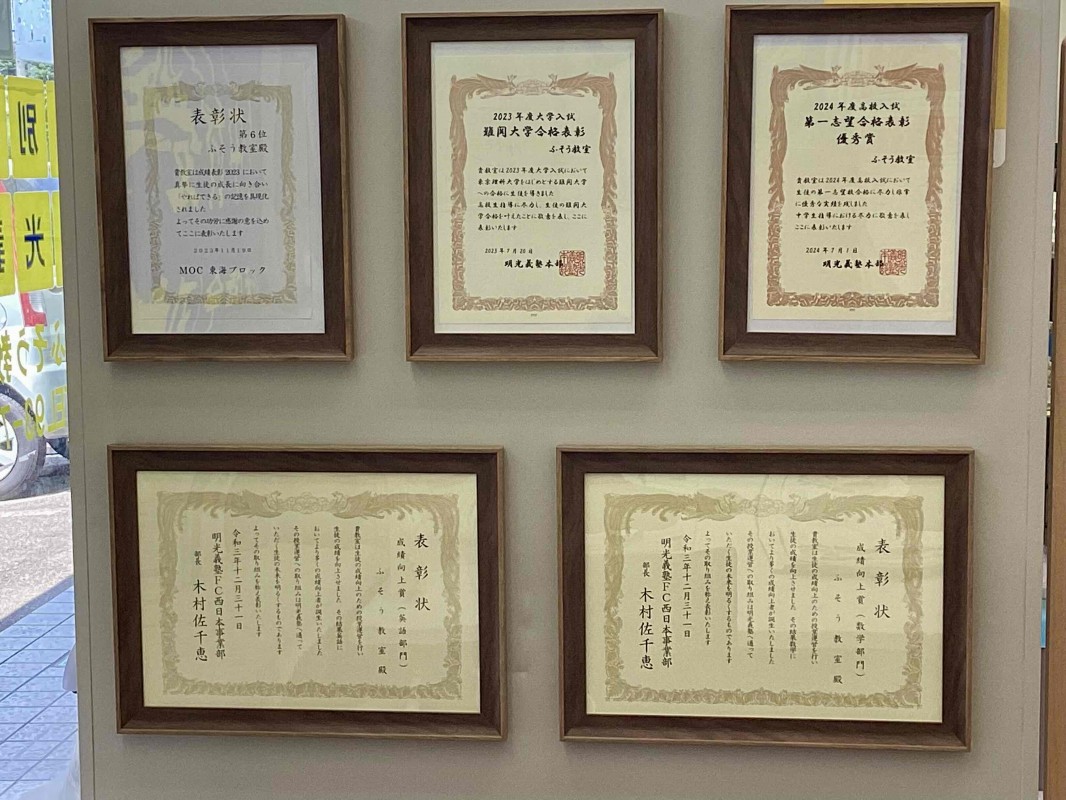 表彰状
第6位
ふそう教室殿
貴教室は成績表彰2023において
真摯に生徒の成長に向き合い
「やればできる」の記憶を具現化
されました
よってその功労に感謝の意を込め
てここに表彰いたします
MOC 東海ブロック
2023年度大学入試
難関大学合格表彰
ふそう教室
貴教室は2023年度大学入試において
東京理科大学をはじめとする難関大学
への合格に生徒を導きました
高校生指導に尽力し、生徒の難関大
学合格を叶えたことに敬意を表し、ここに
表彰いたします
2023年7月20日
明光義塾本部
2024年度高校入試
第一志望合格表彰
優秀賞
ふそう教室
貴教室は2024年度高校入試において
生徒の第一志望校合格に尽力し非常
に優秀な実績を残しました
中学生指導における尽力に敬意を表し
ここに表彰いたします
2024年7月1日
明光義塾本部
表彰状
成績向上賞(英語部門)
ふそう教室殿
貴教室は生徒の成績向上のための授業運営を行い
生徒の成績を向上させました その結果英語に
おいてより多くの成績向上者が誕生いたしました
その授業運営への取り組みは明光義塾へ通って
いただく生徒の未来を明るくするものであります
よってその取り組みを称え表彰いたします
令和三年十二月三十一日
明光義塾FC西日本事業部
部長 木村佐千恵
表彰状
成績向上賞(数学部門)
ふそう教室殿
貴教室は生徒の成績向上のための授業運営を行い
生徒の成績を向上させました その結果数学に
おいてより多くの成績向上者が誕生いたしました
その授業運営への取り組みは明光義塾へ通って
いただく生徒の未来を明るくするものであります
よってその取り組みを称え表彰いたします
令和三年十二月三十一日
明光義塾FC西日本事業部
部長 木村佐千恵
別
光
ふそう教